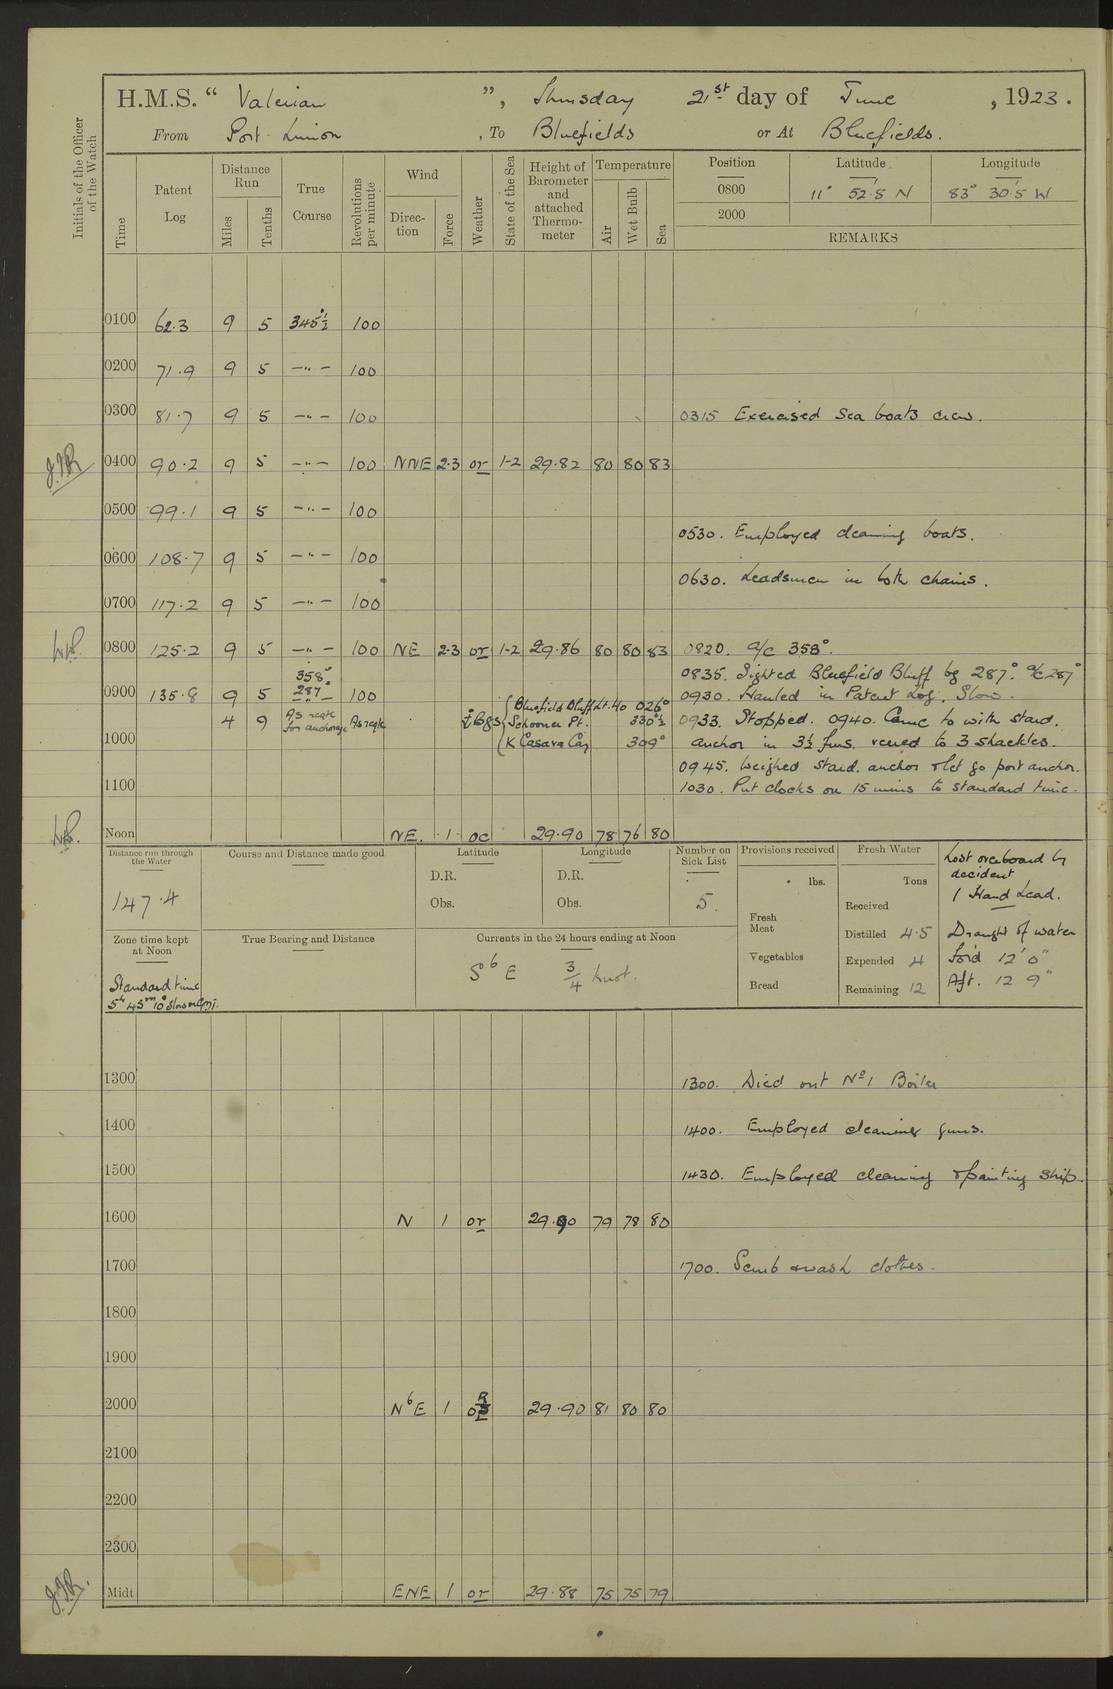 H.M.S. “ Valerian ”, Thursday 21st day of June , 1923 .
From Port Limon , To Bluefields or At Bluefields.
Initials of the Officer of the Watch
Time
Patent Log
Distance Run
Miles
Tenths
True Course
Revolutions per minute
Wind
Direction
Force
Weather
State of the Sea
Height of Barometer and attached Thermometer
Temperature
Air
Wet Bulb
Sea
Position Latitude Longitude
0800 11° 52'.5 N 83° 30'.5 W
2000
REMARKS
0100 62.3 9 5 345°½ 100
0200 71.9 9 5 —"— 100
0300 81.7 9 5 —"— 100 0315 Exercised Sea boats crew.
0400 90.2 9 5 —"— 100 NNE 2.3 or 1-2 29.82 80 80 83
0500 99.1 9 5 —"— 100
0530. Employed cleaning boats.
0600 108.7 9 5 —"— 100
0630. Leadsmen in both chains.
0700 117.2 9 5 —"— 100
0800 125.2 9 5 —"— 100 NE 2.3 or 1-2 29.86 80 80 83 0820. a/c 358°.
358°
0835. Sighted Bluefield Bluff bg 287°. a/c 287°
0900 135.8 9 5 287 100 0930. Hauled in Patent Log. Slow.
4 9 As reqte for anchorage As reqte
Bluefield Bluff Lt. Ho 026°
Schooner Pt. 330°½ 0933. Stopped. 0940. Came to with stard.
1000 K Casava Cay 309° anchor in 3½ fms. veered to 3 shackles.
0945. Weighed stard. anchor & let go port anchor.
1100 1030. Put clocks on 15 mins to standard time.
Noon NE. 1 oc 29.90 78 76 80
Distance run through the Water
147.4
Course and Distance made good
Latitude
D.R.
Obs.
Longitude
D.R.
Obs.
Number on Sick List
5.
Provisions received
lbs.
Fresh Meat
Vegetables
Bread
Fresh Water
Tons
Received
Distilled 4.5
Expended 4
Remaining 12
Lost overboard by
accident
1 Hand Lead.
Draught of water
For'd 12' 0"
Aft. 12 9"
Zone time kept at Noon
Standard time
5h 45m 10s slow on GMT.
True Bearing and Distance
Currents in the 24 hours ending at Noon
S b E ¾ knot.
1300 1300. Died out No 1 Boiler
1400 1400. Employed cleaning guns.
1500 1430. Employed cleaning & painting ship.
1600 N 1 or 29.90 79 78 80
1700 1700. Scrub & wash clothes.
1800
1900
2000 N b E 1 29.90 81 80 80
2100
2200
2300
Midt ENE 1 or 29.88 75 75 79